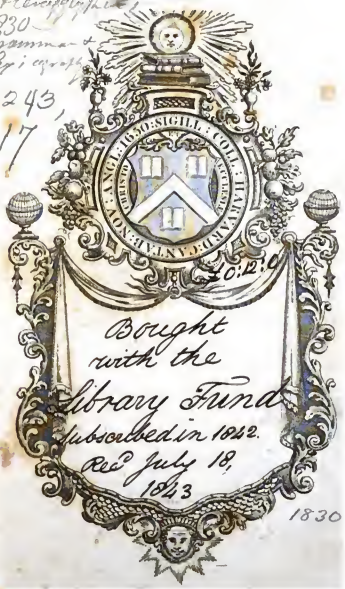 330
243,
17
SIGILL: COLL: HARVARD: CANTAB: NOV: ANGL: 1650:
CHRISTO
ECCLESIÆ
£0:12:0
Bought
with the
Library Fund
Subscribed in 1842.
Rec'd July 18,
1843
1830